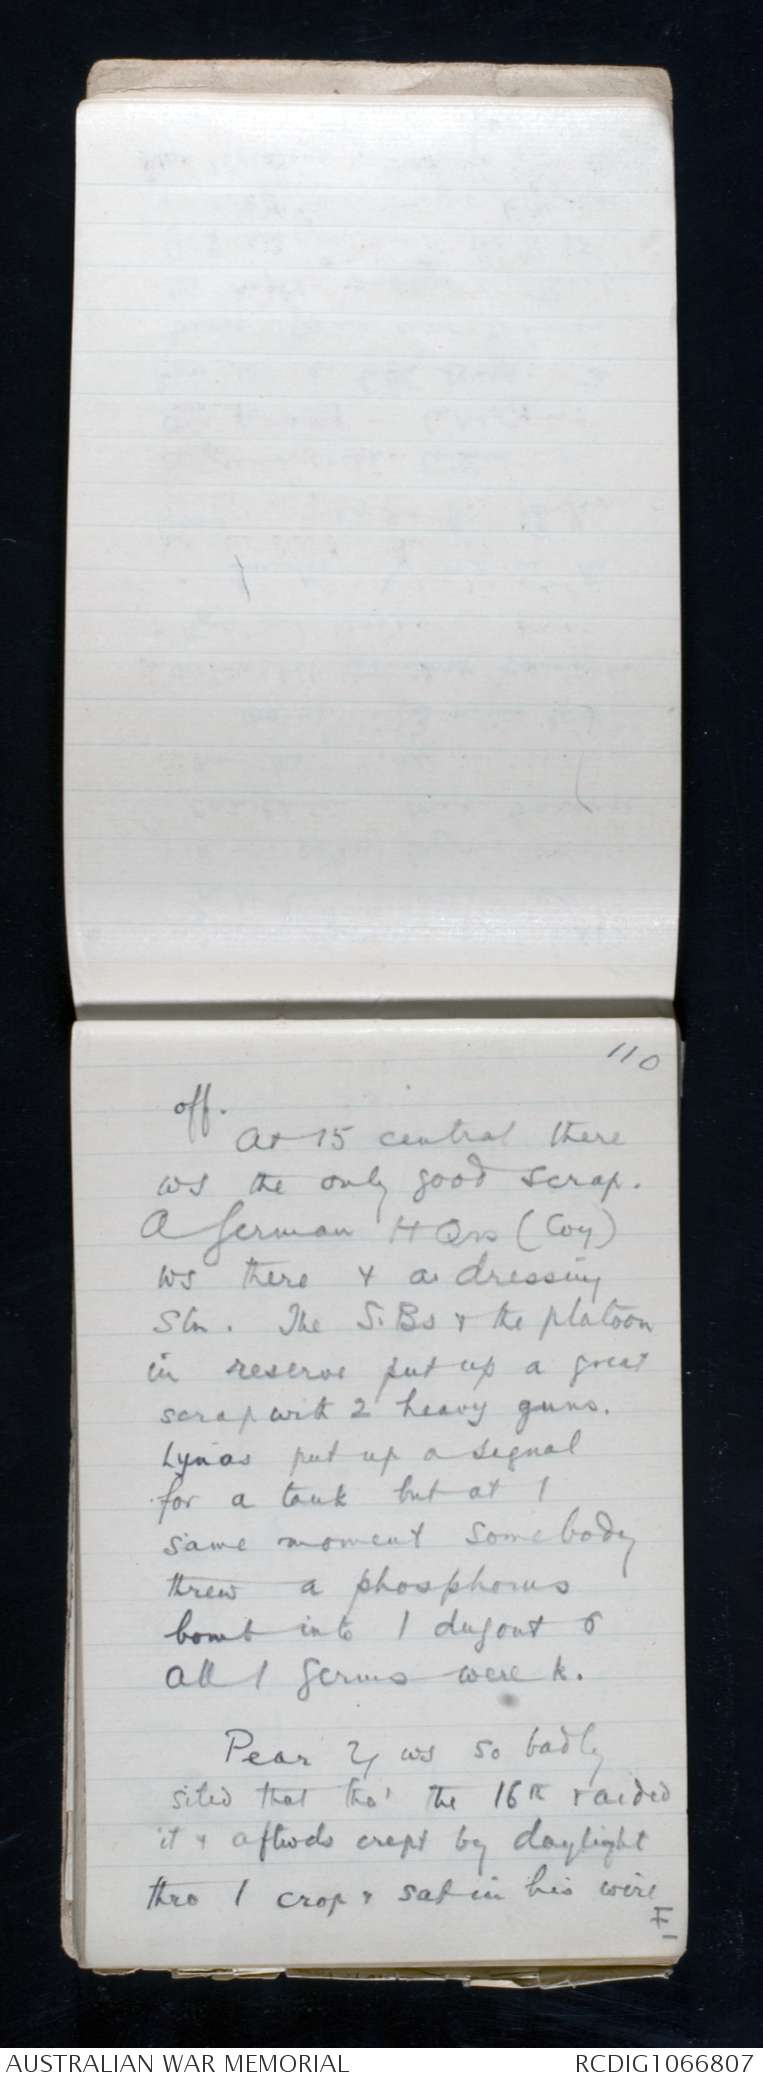 110
off.
At 15 central there
ws the only good scrap.
A German H Qrs (Coy)
ws there & a dressing
Stn. The S.Bs & the platoon
in reserve put up a great
scrap with 2 heavy guns.
Lynas put up a signal
for a tank but at /
same moment somebody
threw a phosphorus
bomb into / dugout &
all / Germs were k.
Pear Tr ws so badly
sited that tho' the 16th raided
it & aftwds crept by daylight
thro / crop & sat in his wire
F
AUSTRALIAN WAR MEMORIAL
RCDIG1066807